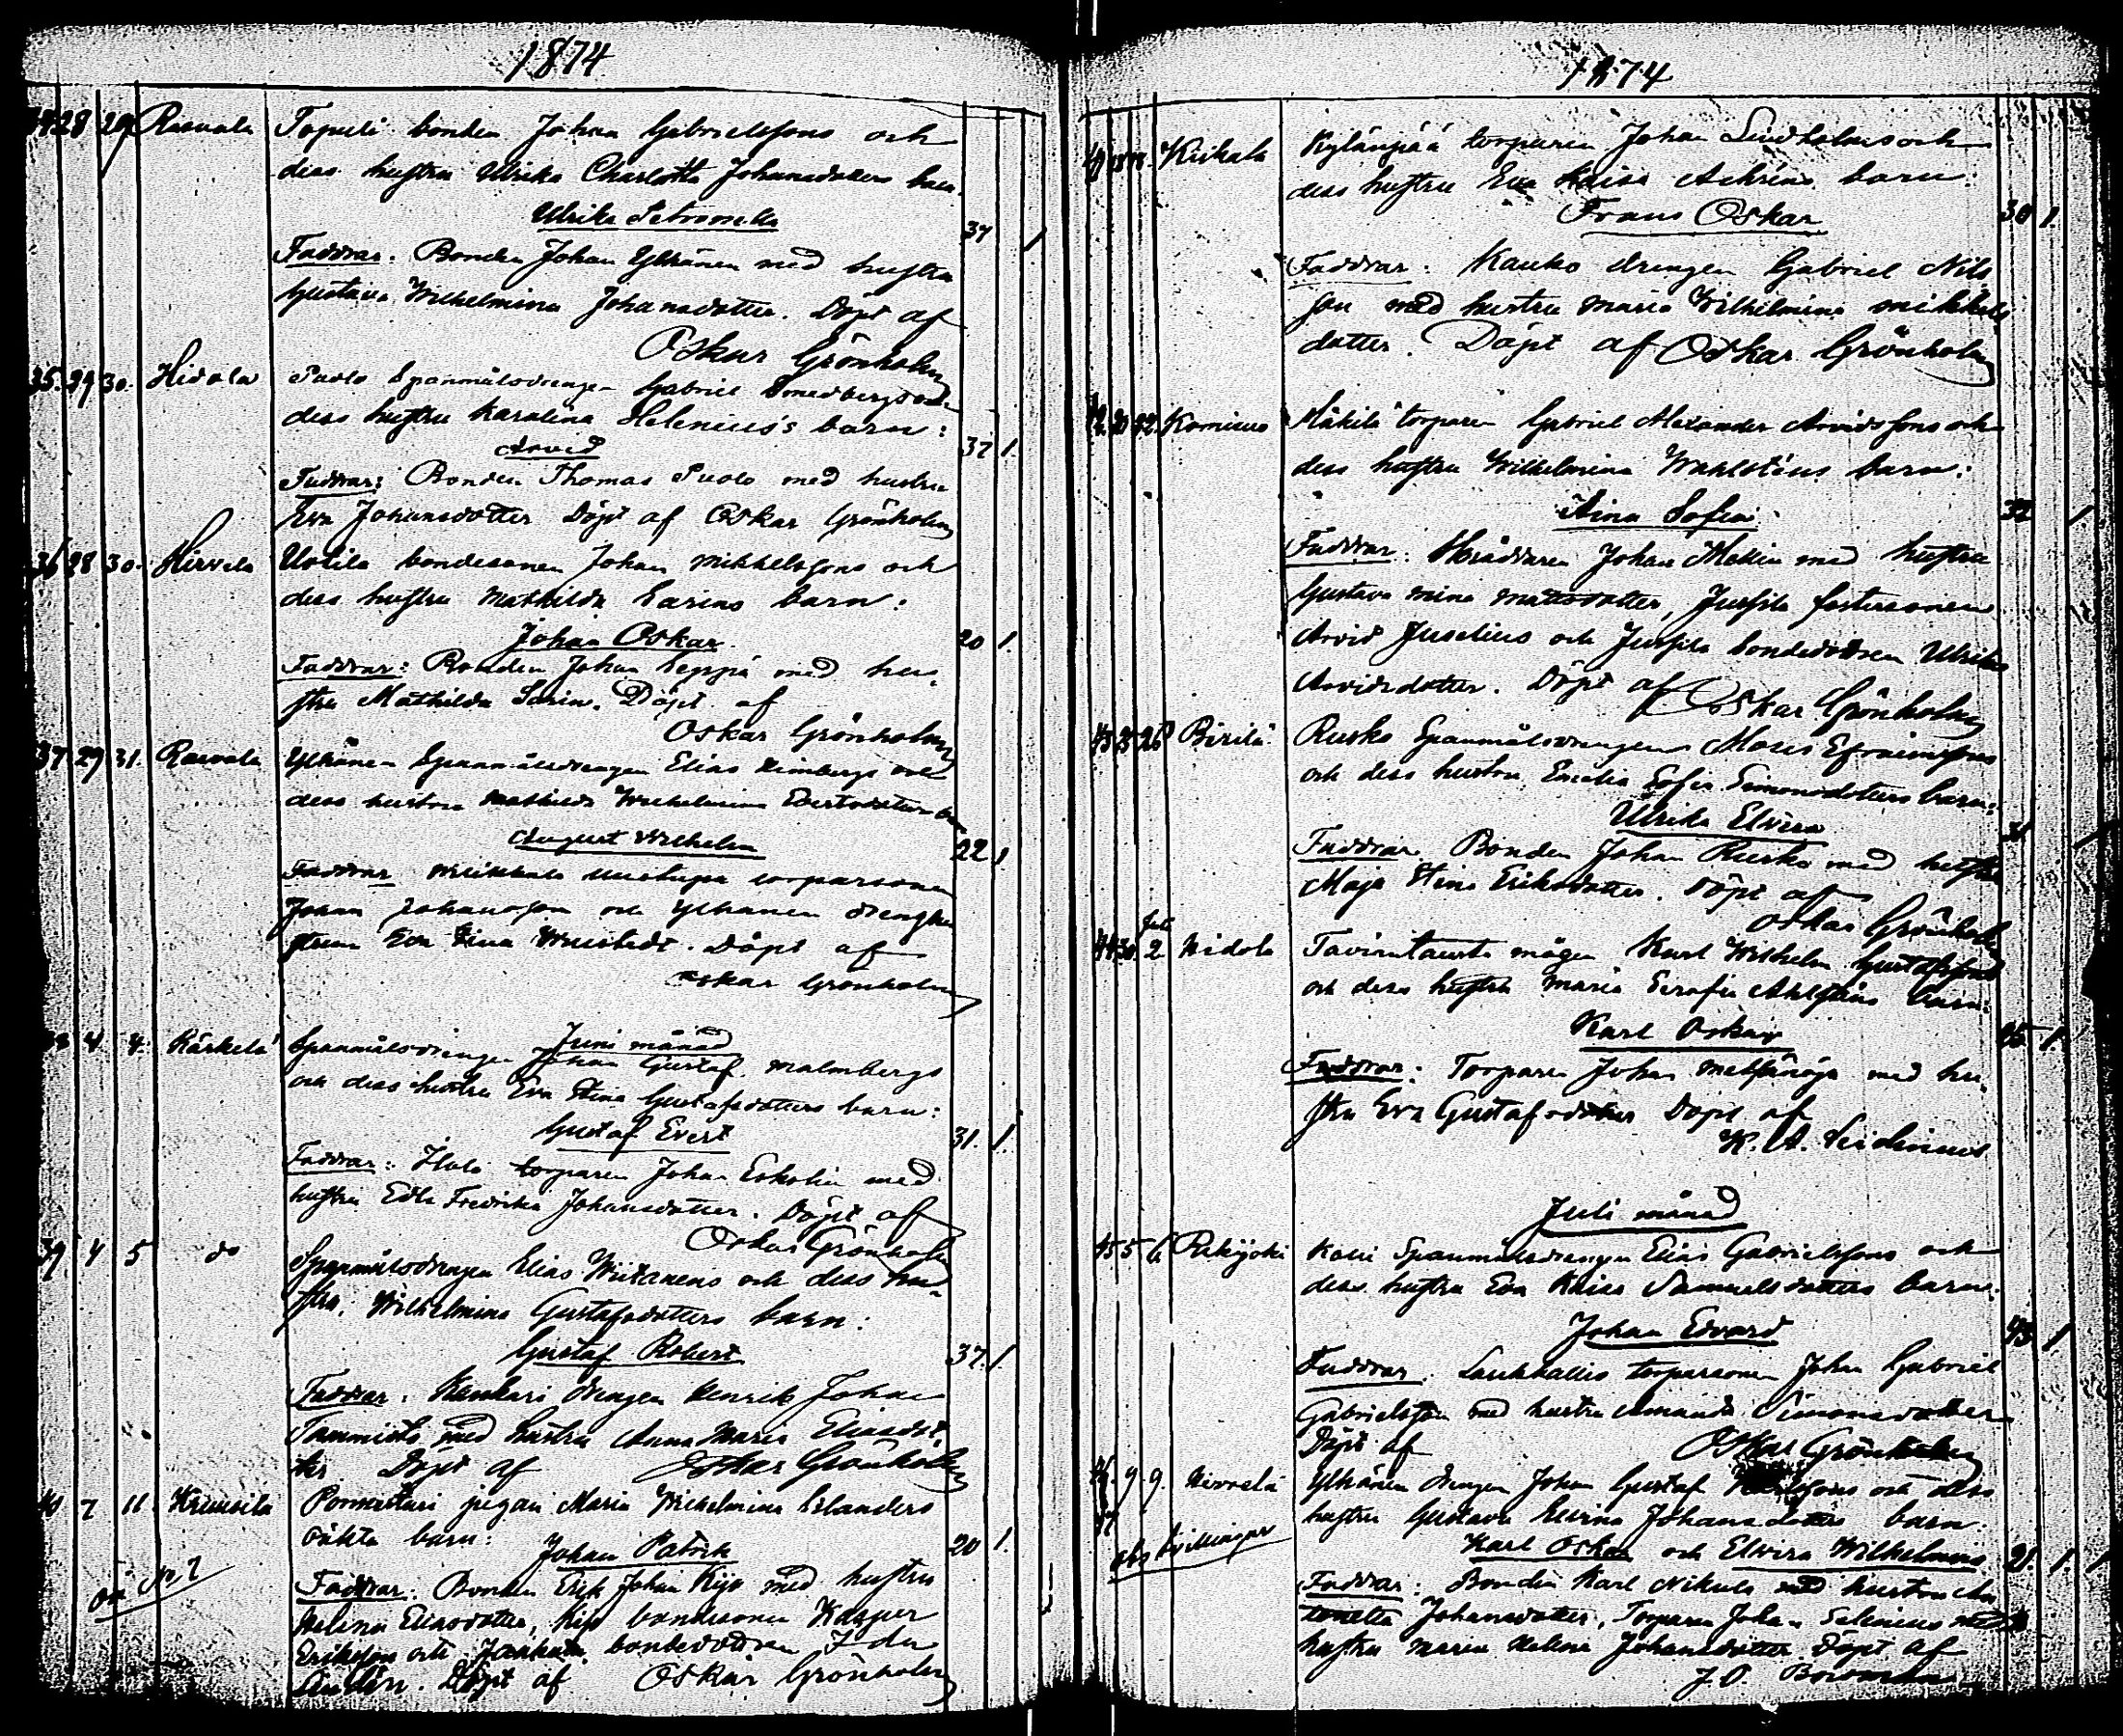 1874
28 29 Rasvala Topuli bonden Johan Gabrielssons och
dess hustru Ulrika Charlotta Johansdotters barn
Ulrika Petronella
37 1
Faddrar. Bonden Johan Ylhänen med hustru
Gustava Wilhelmina Johansdotter. Döpt af
Oskar Grönholm
35. 29 30. Hidola Puolo Spanmålsdrengen Gabriel Smedbergs och
dess hustru Karolina Helenius's barn:
Arvid
37 1.
Faddrar: Bonden Thomas Puolo med hustru
Eva Johansdotter Döpt af Oskar Grönholm
36 28 30. Hirvela Uotila bondesonen Johan Mikkelssons och
dess hustru Mathilda Sarins barn:
Johan Oskar
20 1.
Faddrar: Bonden Johan Seppä med hu-
stru Mathilda Sarin. Döpt af
Oskar Grönholm
37 29 31. Rasvala Ylhänen Spanmålsdrengen Elias Limbergs och
dess hustru Mathilda Wilhelmina Evertsdotters barn
August Wilhelm
22 1
Faddrar torparsonen
Johan Johansson och Ylhänen
Eva Stina Döpt af
Oskar Grönholm
Juni månad
38 4 4. Kärkelä Spanmålsdrengen Johan Gustaf Malmbergs
och dess hustru Eva Stina Gustafsdotters barn:
Gustaf Evert
31. 1.
Faddrar: torparen Johan Eskolin med
hustru Edla Fredrika Johansdotter. Döpt af
Oskar Grönholm
39 4 5 do Spanmålsdrengen Elias Wiitanens och dess hu-
stru Wilhelmina Gustafsdotters barn:
Gustaf Robert
37. 1
Faddrar: Kankari drengen Henrik Johan
Tammisto med hustru Anna Maria Eliasdot-
ter Döpt af Oskar Grönholm
40 7 11. Krumila pigan Maria Wilhelmina Selanders
oäkta barn:
Johan Patrik
20 1.
Faddrar: Bonden Erik Johan Kijo med hustru
Helena Eliasdotter, Kijo bondesonen Kasper
Eriksson och bondedottren Ida
Döpt af Oskar Grönholm
1874
41 18 18. Kiikala Kylänpää torparen Johan Lindholms och
dess hustru Eva Kaisa Achréns barn:
Frans Oskar
30 1.
Faddrar: Kauko drengen Gabriel Nils
son med hustru Maria Wilhelmina Mikkels
dotter. Döpt af Oskar Grönholm
42. 20 22. Komisuo Mäkilä torparen Gabriel Alexander Arvidssons och
dess hustru Wilhelmina Wahlsténs barn:
Aina Sofia
32 1
Faddrar: Johan Mellin med hustru
Gustava Mina Mattsdotter, Jussila fostersonen
Arvid Juselius och Jussila bondedottren Ulrika
Arvidsdotter. Döpt af Oskar Grönholm
43 25 26 Pirilä Rusko Spanmålsdrengens Moses Efraimssons
och dess hustru Emelia Sofia Simonsdotters barn:
Ulrika Elvira
31
Faddrar. Bonden Johan Rusko med hustru
Maja Stina Eriksdotter. Döpt af
Oskar Grönholm
Juli
44 30. 2 Hidola mågen Karl Wilhelm Gustafssons
och dess hustru Maria Serafia Ahlsténs barn:
Karl Oskar
25 1.
Faddrar: Torparen Johan Metsänoja med hu-
stru Eva Gustafsdotter Döpt af
K. A. Leidenius
Juli månad
45 5 6. Pahijoki Kalli Spanmålsdrengen Elias Gabrielssons och
dess hustru Eva Kaisa Samuelsdotters barn:
Johan Edvard
43 1
Faddrar. Laukkallio torparsonen Johan Gabriel
Gabrielsson med hustru Amanda Simonsdotter
Döpt af Oskar Grönholm
46. 9 9. Hirvelä Ylhänen drengen Johan Gustaf och dess
47 hustru Gustava Johansdotters barn:
obs tvillingar
Karl Oskar och Elvira Wilhelmina
21. 1. 1
Faddrar: Bonden Karl Nikula med hustru An
tonetta Johansdotter, Torparen Johan Selenius med
hustru Maria Helena Johansdotter Döpt af
J. O. Bowman